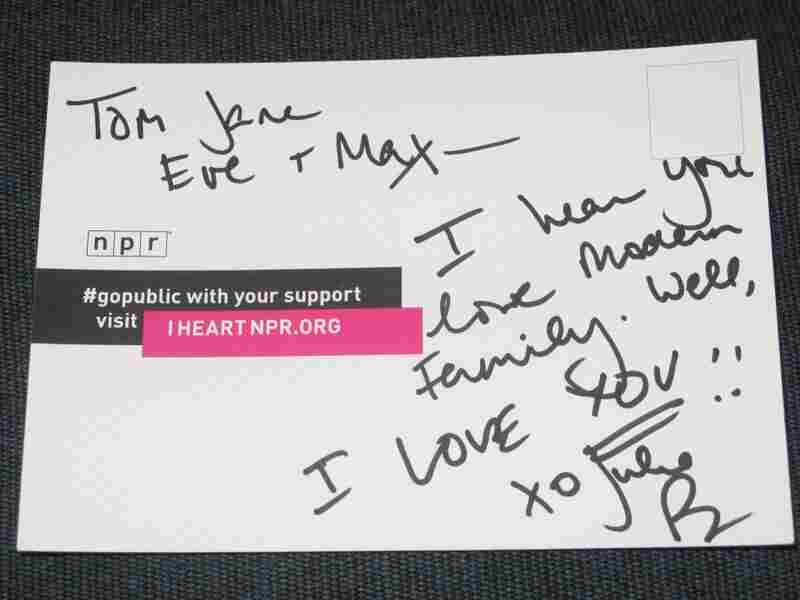 Tom Jane
Eve + Max—
npr
#gopublic with your support
visit IHEARTNPR.ORG
I hear you
love Modern
Family. Well,
I LOVE YOU!!
xo Julie
B